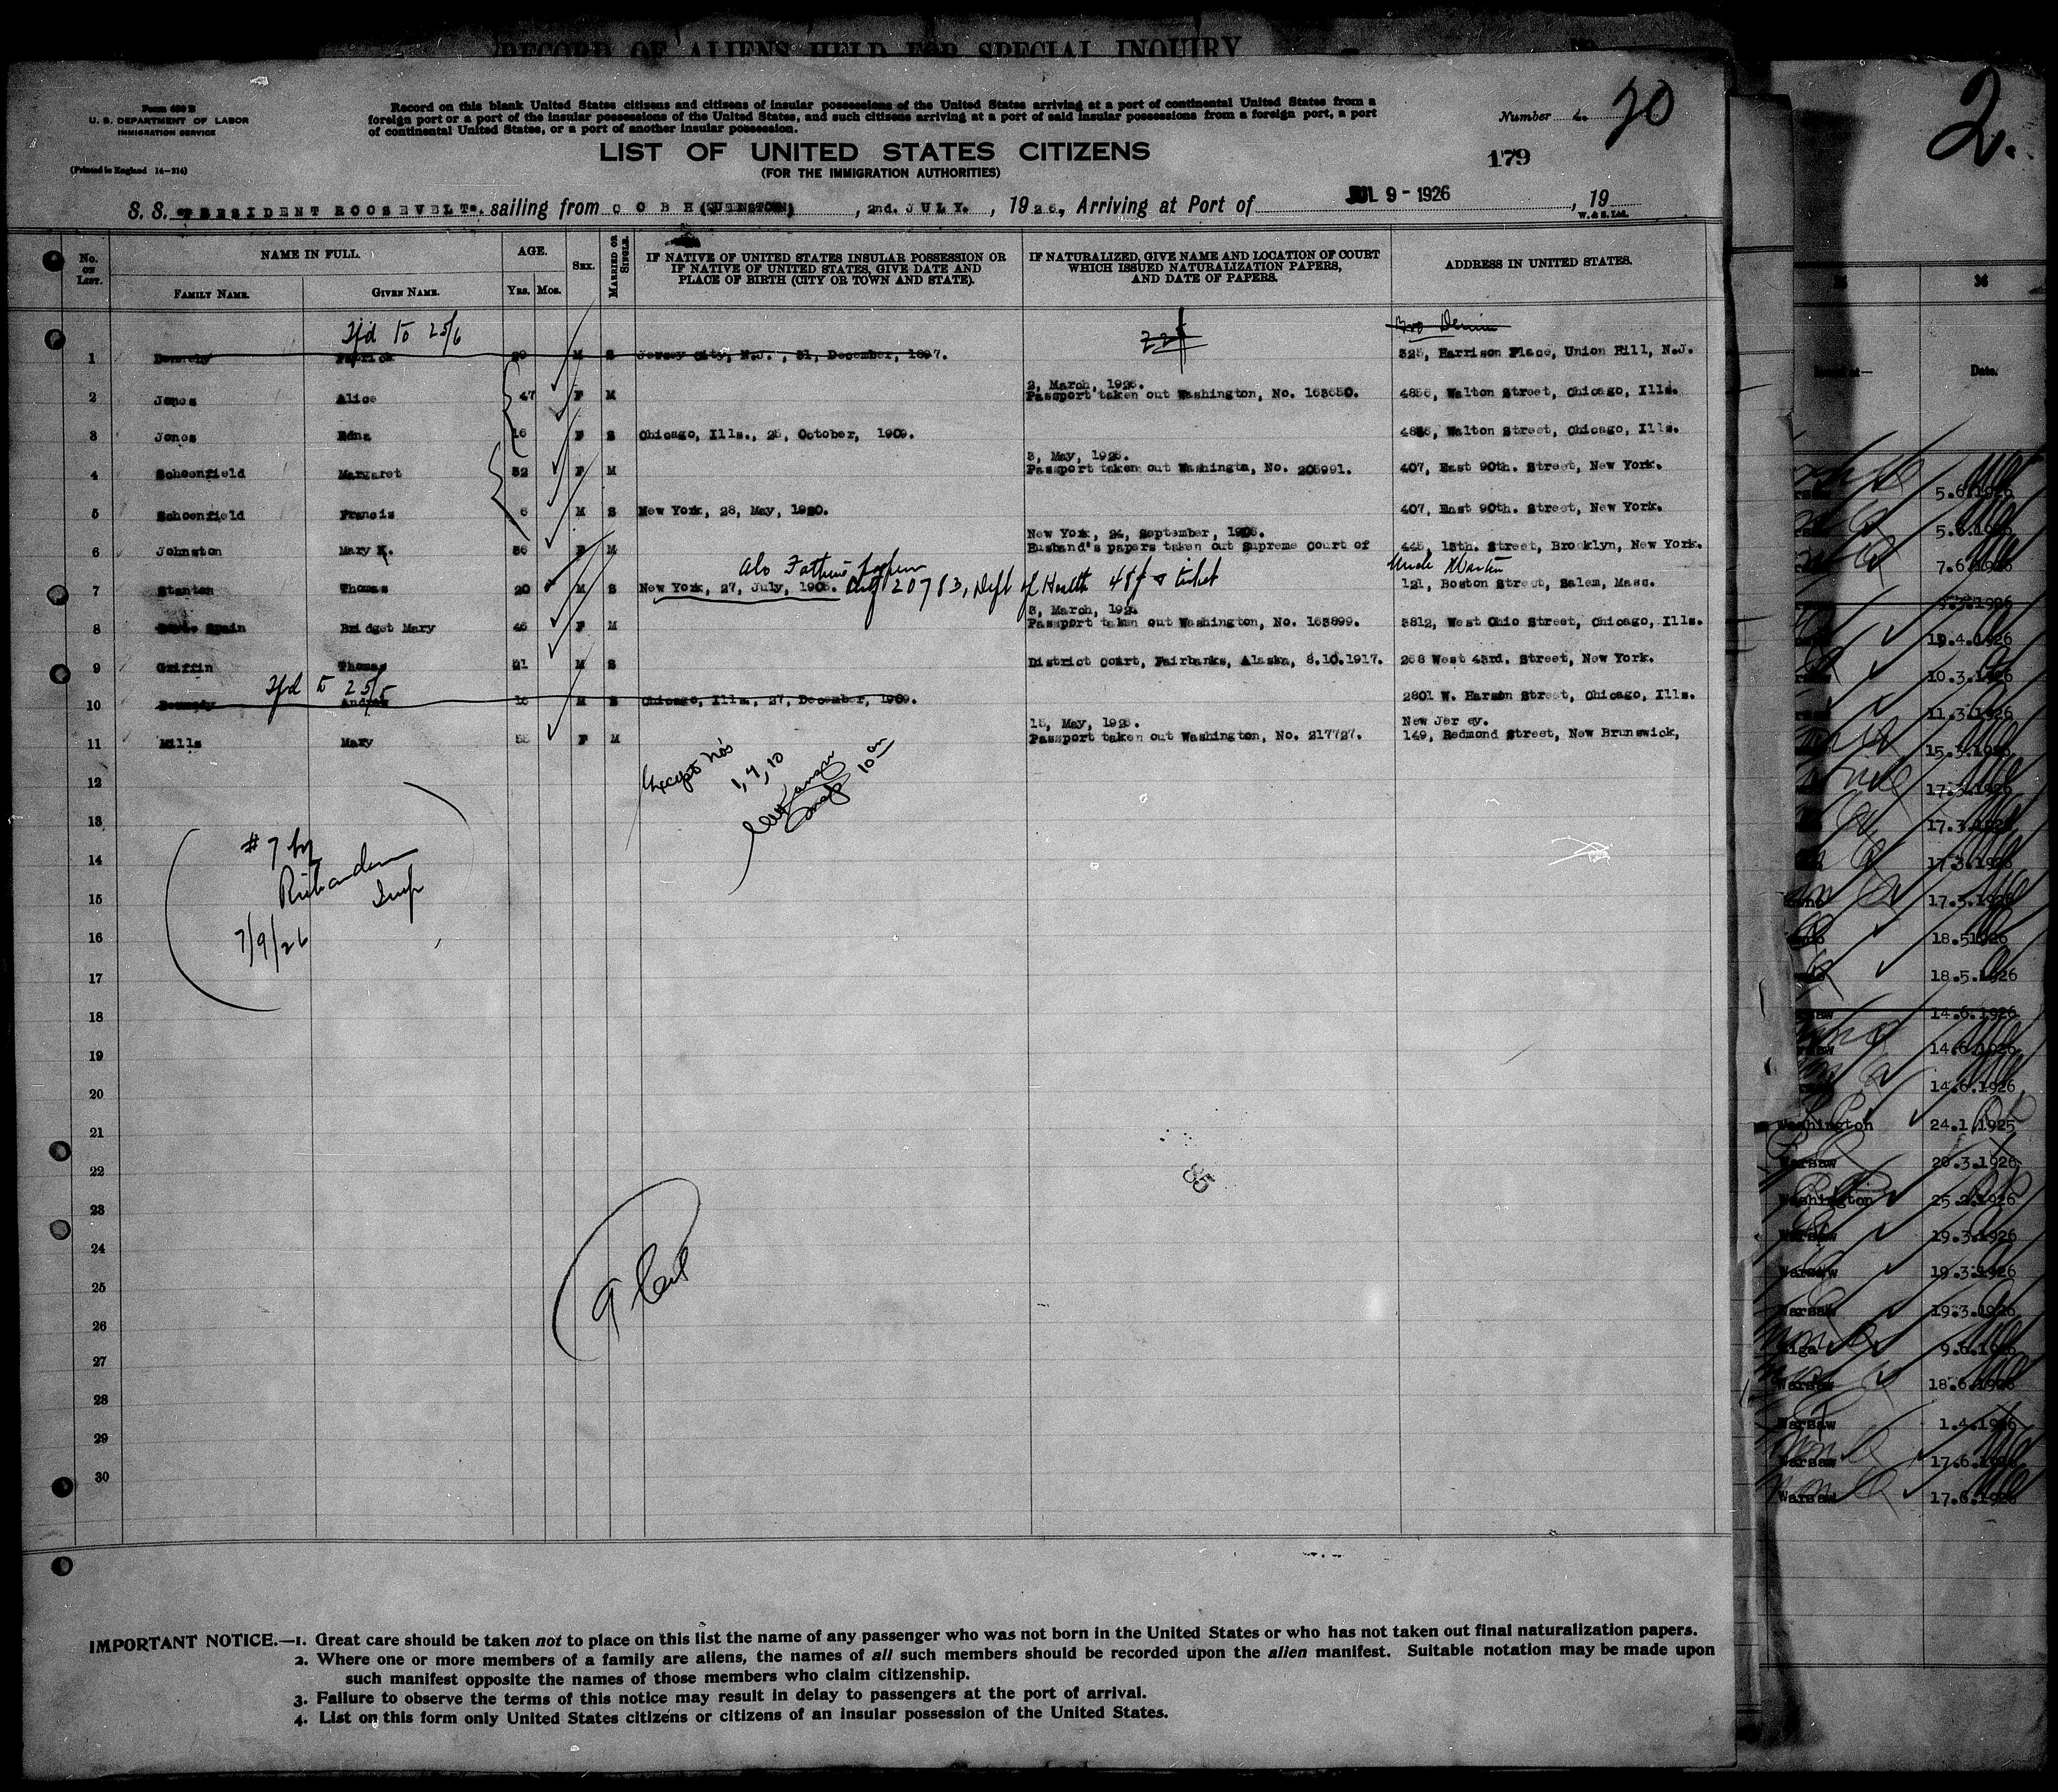 RECORD OF ALIENS HELD FOR SPECIAL INQUIRY
Form 630 B
U. S. DEPARTMENT OF LABOR
IMMIGRATION SERVICE
(Printed in England 14-214)
Record on this blank United States citizens and citizens of insular possessions of the United States arriving at a port of continental United States from a
foreign port or a port of the insular possessions of the United States, and such citizens arriving at a port of said insular possessions from a foreign port, a port
of continental United States, or a port of another insular possession.
Number 20
LIST OF UNITED STATES CITIZENS
(FOR THE IMMIGRATION AUTHORITIES)
179
S. S. "PRESIDENT ROOSEVELT". sailing from COBH (QUEENSTOWN), 2nd. JULY., 1926., Arriving at Port of JUL 9 - 1926, 19
W. & S. Ltd.
No. on List. NAME IN FULL. AGE. Sex. Married or Single. IF NATIVE OF UNITED STATES INSULAR POSSESSION OR IF NATIVE OF UNITED STATES, GIVE DATE AND PLACE OF BIRTH (CITY OR TOWN AND STATE). IF NATURALIZED, GIVE NAME AND LOCATION OF COURT WHICH ISSUED NATURALIZATION PAPERS, AND DATE OF PAPERS. ADDRESS IN UNITED STATES.
Family Name. Given Name. Yrs. Mos.
Tfd to 25/6
1 Patrick M S Jersey City, N.J., 31, December, 1897. 325, Harrison Place, Union Hill, N.J.
2, March, 1926.
2 Jones Alice 47 F M Passport taken out Washington, No. 163650. 4856, Walton Street, Chicago, Ills.
3 Jones Edna 16 F S Chicago, Ills., 25, October, 1909. 4856, Walton Street, Chicago, Ills.
3, May, 1926.
4 Schoenfield Margaret 32 F M Passport taken out Washingtn, No. 205991. 407, East 90th. Street, New York.
5 Schoenfield Francis 6 M S New York, 28, May, 1920. 407, East 90th. Street, New York.
New York, 24, September, 1906.
6 Johnston Mary K. 36 F M Husband's papers taken out Supreme Court of 445, 15th. Street, Brooklyn, New York.
also Uncle Martin
7 Stanton Thomas 20 M S New York, 27, July, 1905. 20783, Dept of Health 121, Boston Street, Salem, Mass.
3, March, 1926.
8 Spain Bridget Mary 45 F M Passport taken out Washington, No. 163899. 5812, West Ohio Street, Chicago, Ills.
9 Griffin Thomas 21 M S District Court, Fairbanks, Alaska, 8.10.1917. 258 West 43rd. Street, New York.
Tfd to 25/5
10 Andrew 16 M S Chicago, Ills., 27, December, 1909. 2801 W. Harson Street, Chicago, Ills.
15, May, 1926. New Jer ey.
11 Mills Mary 55 F M Passport taken out Washington, No. 217727. 149, Redmond Street, New Brunswick,
Except No's
1, 7, 10
12
13
14
15
16
17
18
19
20
21
22
23
24
25
26
27
28
29
30
# 7 by
Richardson
Insp
7/9/26
85
IMPORTANT NOTICE.—1. Great care should be taken not to place on this list the name of any passenger who was not born in the United States or who has not taken out final naturalization papers.
2. Where one or more members of a family are aliens, the names of all such members should be recorded upon the alien manifest. Suitable notation may be made upon
such manifest opposite the names of those members who claim citizenship.
3. Failure to observe the terms of this notice may result in delay to passengers at the port of arrival.
4. List on this form only United States citizens or citizens of an insular possession of the United States.
2.
36
Date.
5.6.1926
5.6.1926
7.6.1926
9.3.1926
19.4.1926
10.3.1926
11.3.1926
15.3.1926
17.3.1926
17.3.1926
17.3.1926
17.3.1926
18.5.1926
18.5.1926
14.6.1926
14.6.1926
14.6.1926
Washington 24.1.1925
Warsaw 20.3.1926
Washington 25.2.1926
Warsaw 19.3.1926
Warsaw 19.3.1926
Warsaw 19.3.1926
Riga 9.6.1926
Warsaw 18.6.1926
Warsaw 1.4.1926
Warsaw 17.6.1926
Warsaw 17.6.1926